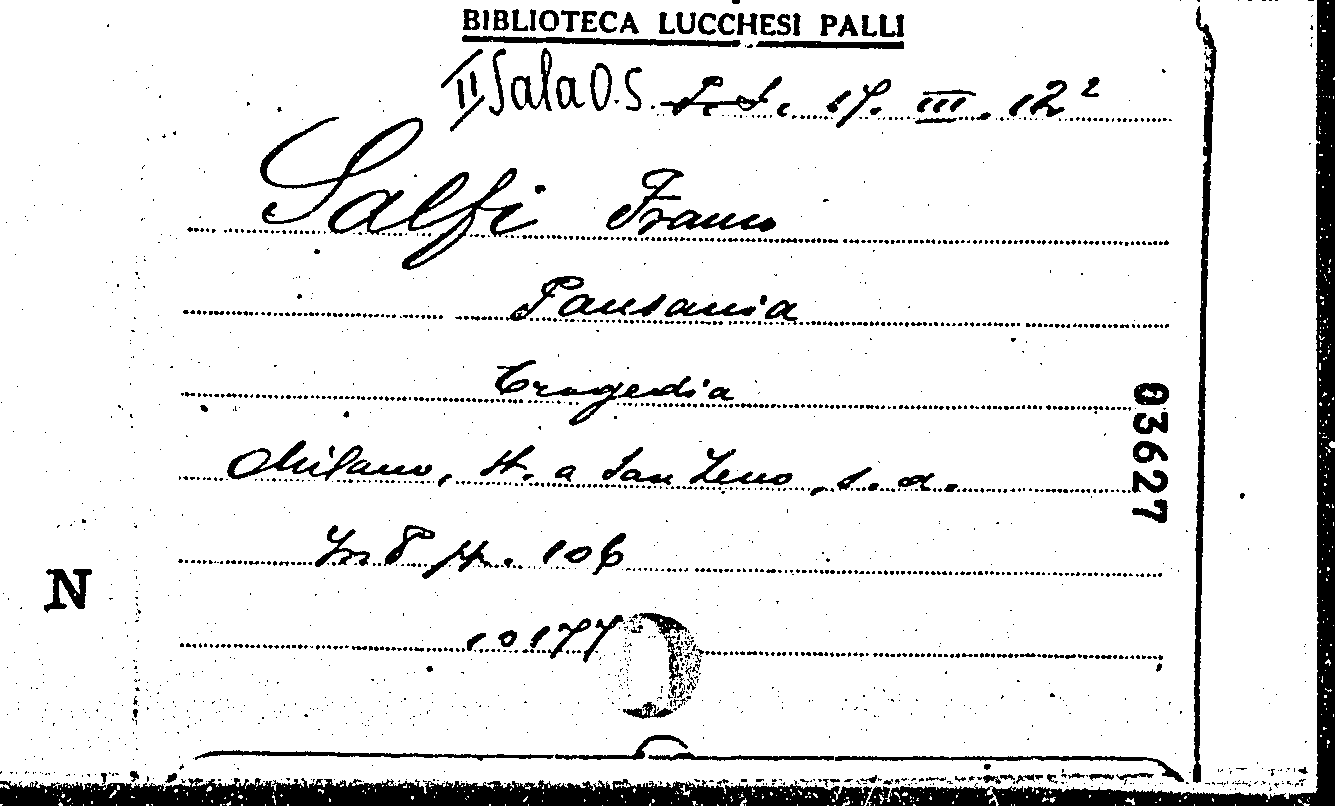 BIBLIOTECA LUCCHESI PALLI
II Sala O.S. 17. III. 12²
Salfi Franco
Pausania
Tragedia
Milano, St. a San Zeno, s. d.
In 8° pp. 106
10177
03627
N